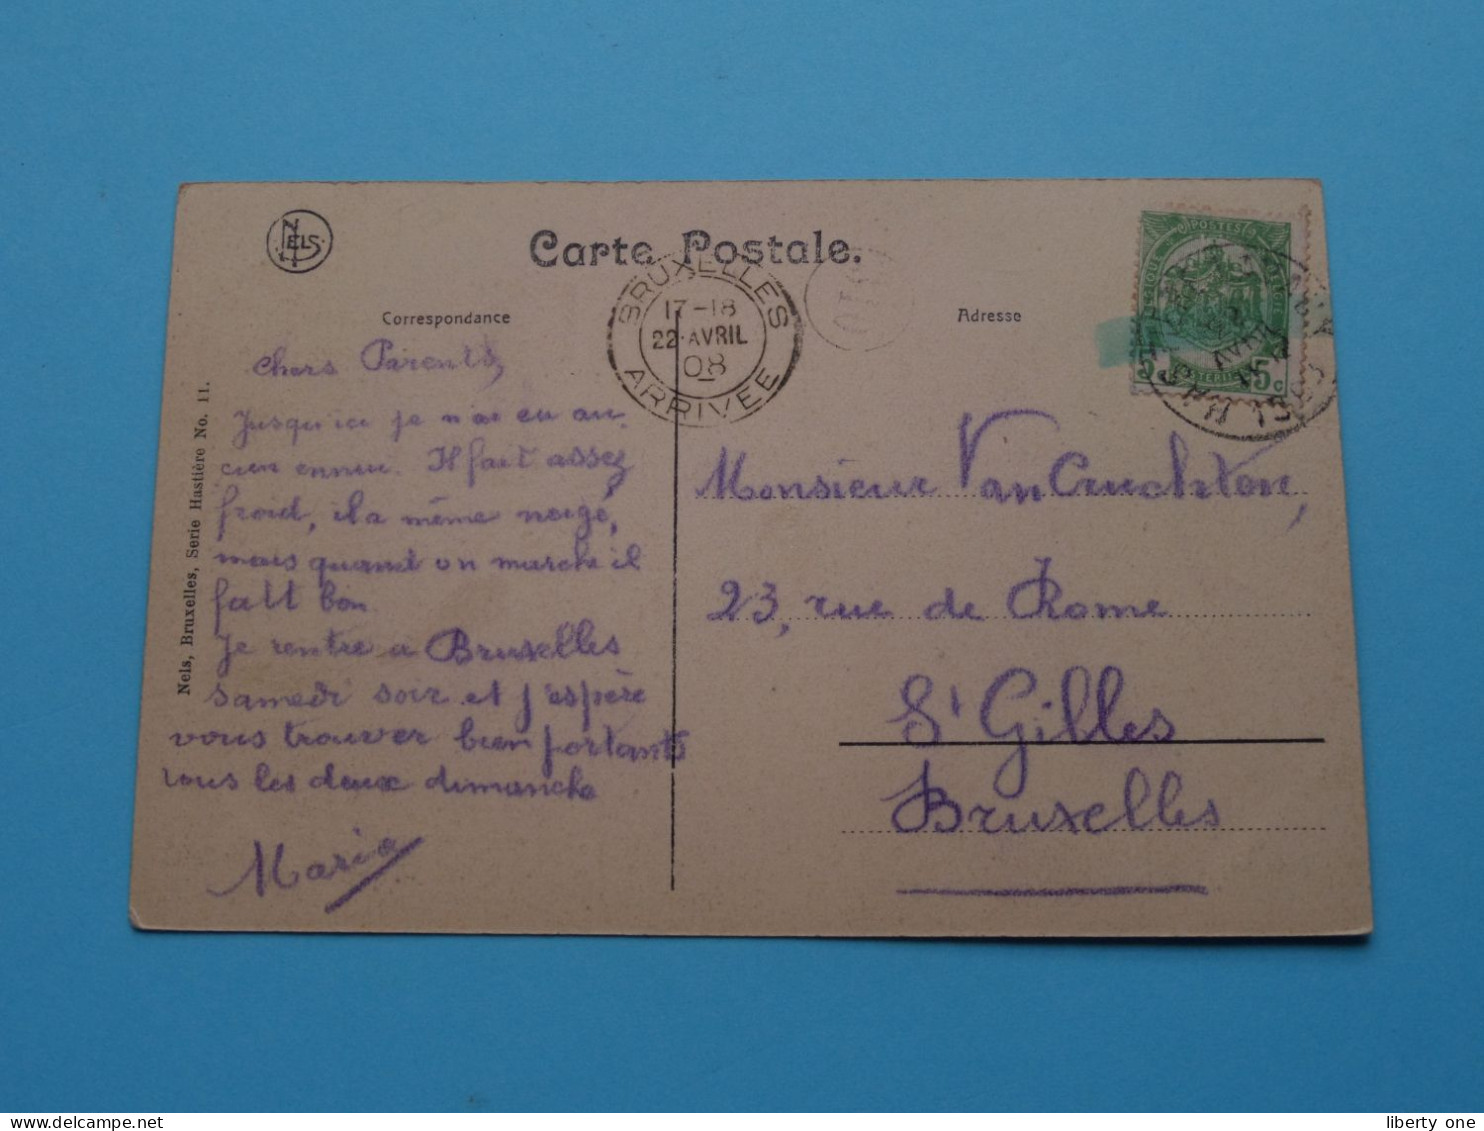 NELS
Carte Postale.
Correspondance
Adresse
BRUXELLES
17-18
22·AVRIL
08
ARRIVÉE
POSTES
5 5c
Nels, Bruxelles, Serie Hastière No. 11.
chers Parents,
Jusqu'ici je n'ai eu au-
cun ennui. Il fait assez
froid, il a même neigé,
mais quand on marche il
fait bon.
Je rentre à Bruxelles
samedi soir et j'espère
vous trouver bien portants
tous les deux dimanche
Maria
Monsieur Van Cruchten,
23, rue de Rome
St Gilles
Bruxelles
liberty one